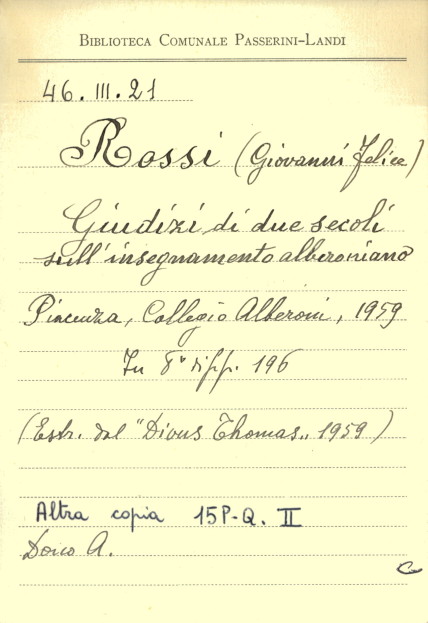 BIBLIOTECA COMUNALE PASSERINI-LANDI
46. III. 21
Rossi (Giovanni Felice)
Giudizi di due secoli
sull'insegnamento alberoniano
Piacenza, Collegio Alberoni, 1959
In 8° pp. 196
(Estr. dal "Divus Thomas„ 1959)
Altra copia 15P-Q. II
Dono A.